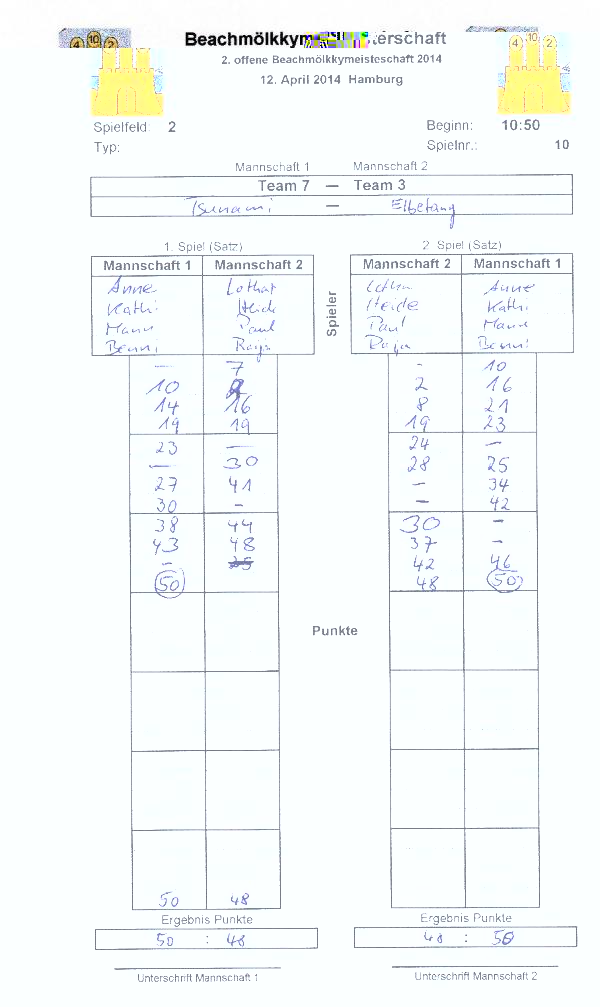 4 10 2
Beachmölkkymeisterschaft
2. offene Beachmölkkymeisteschaft 2014
12. April 2014 Hamburg
4 10 2
Spielfeld: 2
Beginn: 10:50
Typ:
Spielnr.: 10
Mannschaft 1 Mannschaft 2
Team 7 — Team 3
Tsunami — Elbetang
1. Spiel (Satz)
2. Spiel (Satz)
Mannschaft 1 Mannschaft 2
Mannschaft 2 Mannschaft 1
Anne Lothar
Anne
Kathi Heide
Heide Kathi
Mann Paul
Paul Mann
Benni
Benni
Spieler
— 7
- 10
10
2 16
14 16
8 21
19 19
19 23
23 —
24 -
— 30
28 25
27 41
- 34
30 -
- 42
38 44
30 -
43 48
37 -
- 25
42 46
50
48 50
Punkte
50 48
Ergebnis Punkte
Ergebnis Punkte
50 : 48
48 : 50
Unterschrift Mannschaft 1
Unterschrift Mannschaft 2